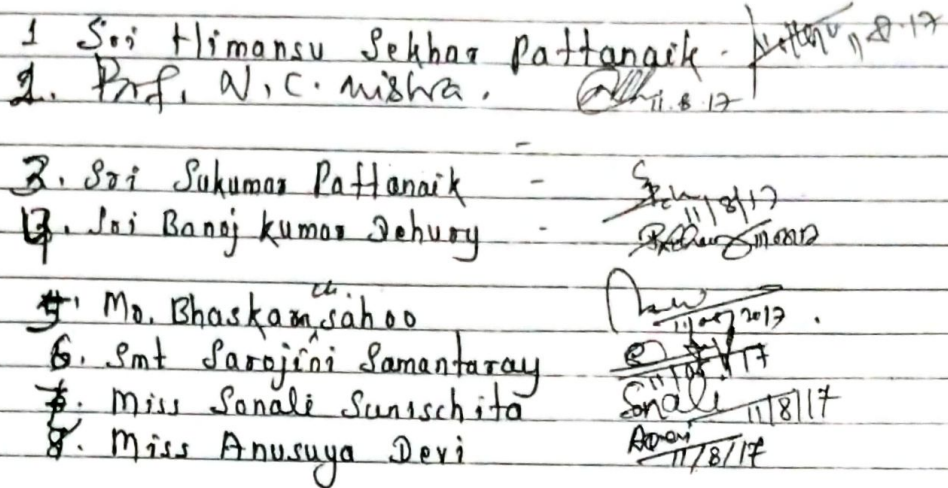 1 Sri Himansu Sekhar Pattanaik - 11.8.17
2. Prof. N.C. Mishra. 11.8.17
3. Sri Sukumar Pattanaik - 11/8/17
4. Sri Banoj kumar Dehury -
5. Mr. Bhaskar ch. Sahoo 11/08/2017.
6. Smt Sarojini Samantaray
7. Miss Sonali Sunischita Sonali 11/8/17
8. Miss Anusuya Devi 11/8/17